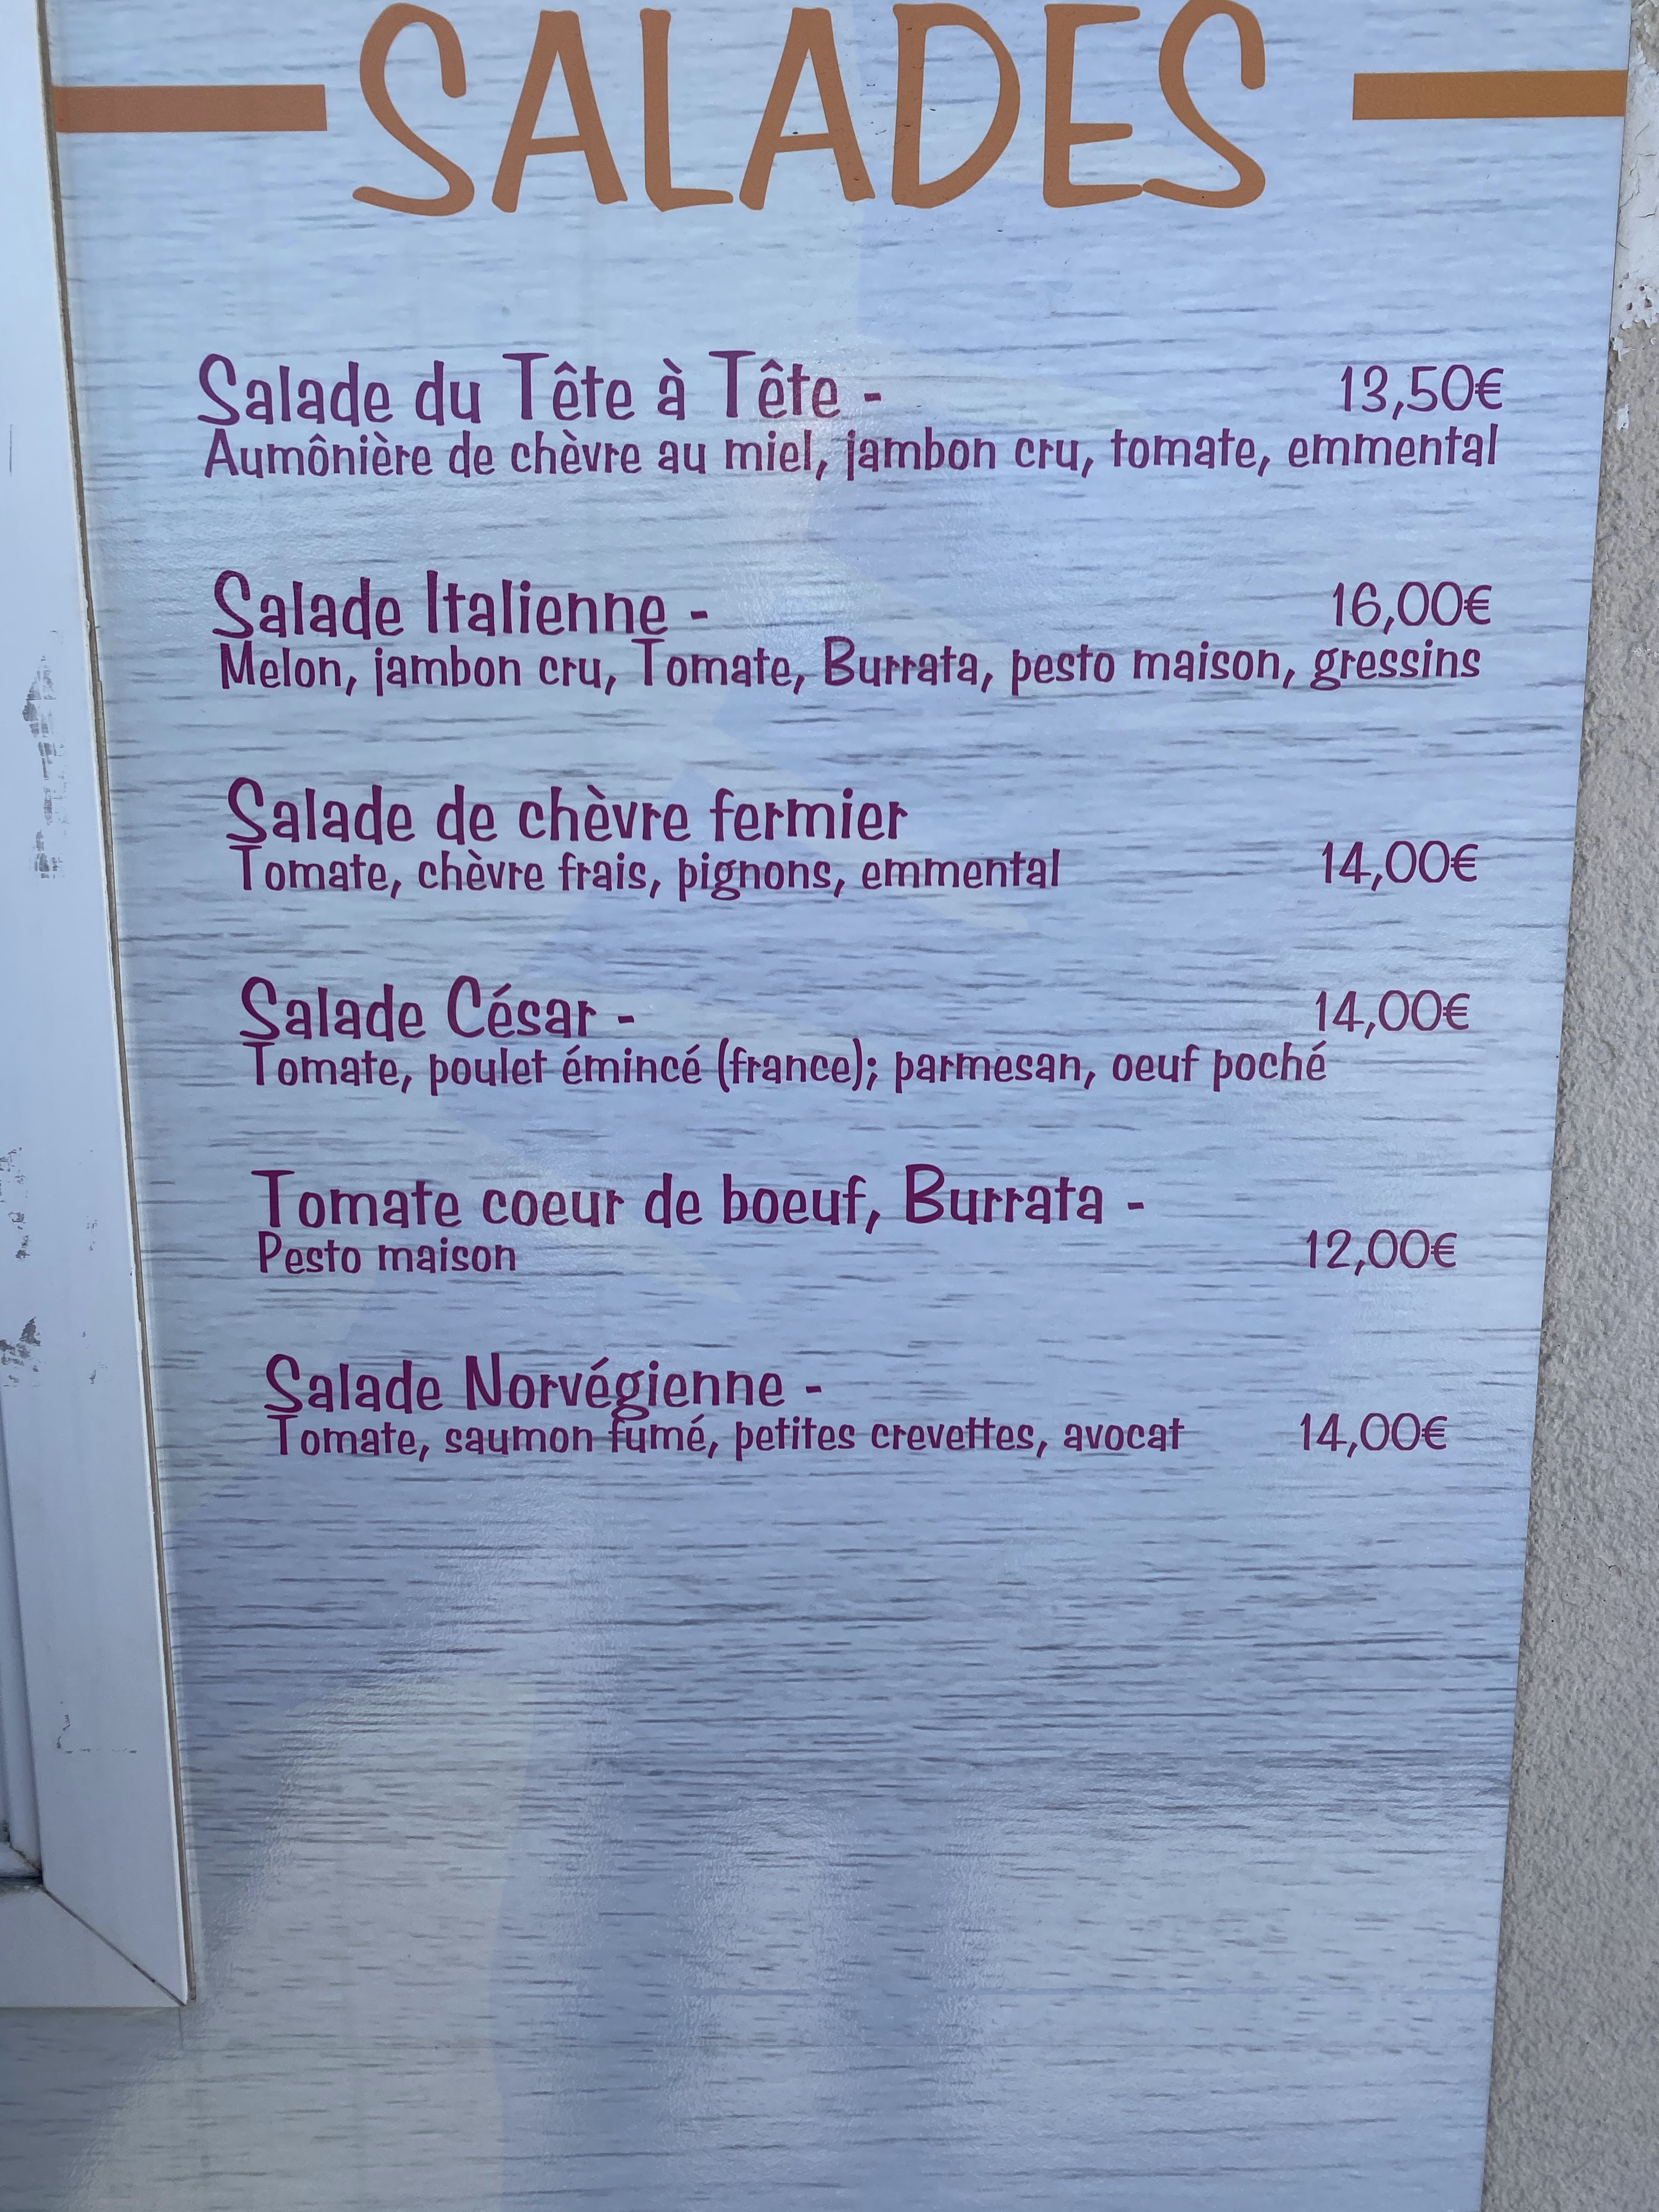 SALADES
Salade du Tête à Tête - 13,50€
Aumônière de chèvre au miel, jambon cru, tomate, emmental
Salade Italienne - 16,00€
Melon, jambon cru, Tomate, Burrata, pesto maison, gressins
Salade de chèvre fermier
Tomate, chèvre frais, pignons, emmental 14,00€
Salade César - 14,00€
Tomate, poulet émincé (france); parmesan, oeuf poché
Tomate coeur de boeuf, Burrata -
Pesto maison 12,00€
Salade Norvégienne -
Tomate, saumon fumé, petites crevettes, avocat 14,00€